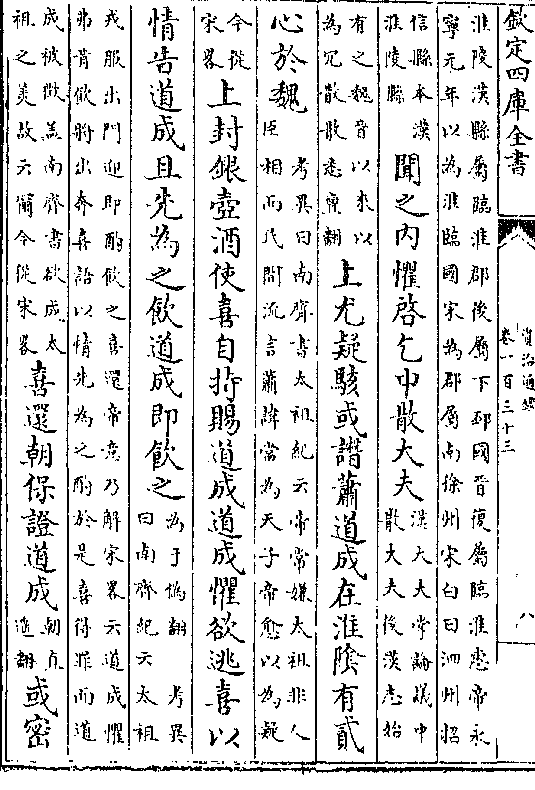 欽定四庫全書
資治通鑑
卷一百三十三
八
淮陵漢縣屬臨淮郡後屬下邳國晉復屬臨淮惠帝永
寧元年以為淮臨國宋為郡屬南徐州宋白曰泗州招
信縣本漢
淮陵縣
聞之内懼啓乞中散大夫
漢大夫掌論議中
散大夫後漢志始
有之魏晉以來以
為冗散散悉亶翻
上尤疑駭或譖蕭道成在淮陰有貳
心於魏
考異曰南齊書太祖紀云帝常嫌太祖非人
臣相而民間流言蕭諱當為天子帝愈以為疑
今從
宋畧
上封銀壺酒使喜自持賜道成道成懼欲逃喜以
情告道成且先為之飲道成即飲之
為于偽翻考異
曰南齊紀云太祖
戎服出門迎即酌飲之喜還帝意乃解宋畧云道成懼
弗肯飲將出奔喜語以情先為之酌於是喜得罪而道
成被徴蓋南齊書欲成太
祖之美故云爾今從宋畧
喜還朝保證道成
朝直
遥翻
或密